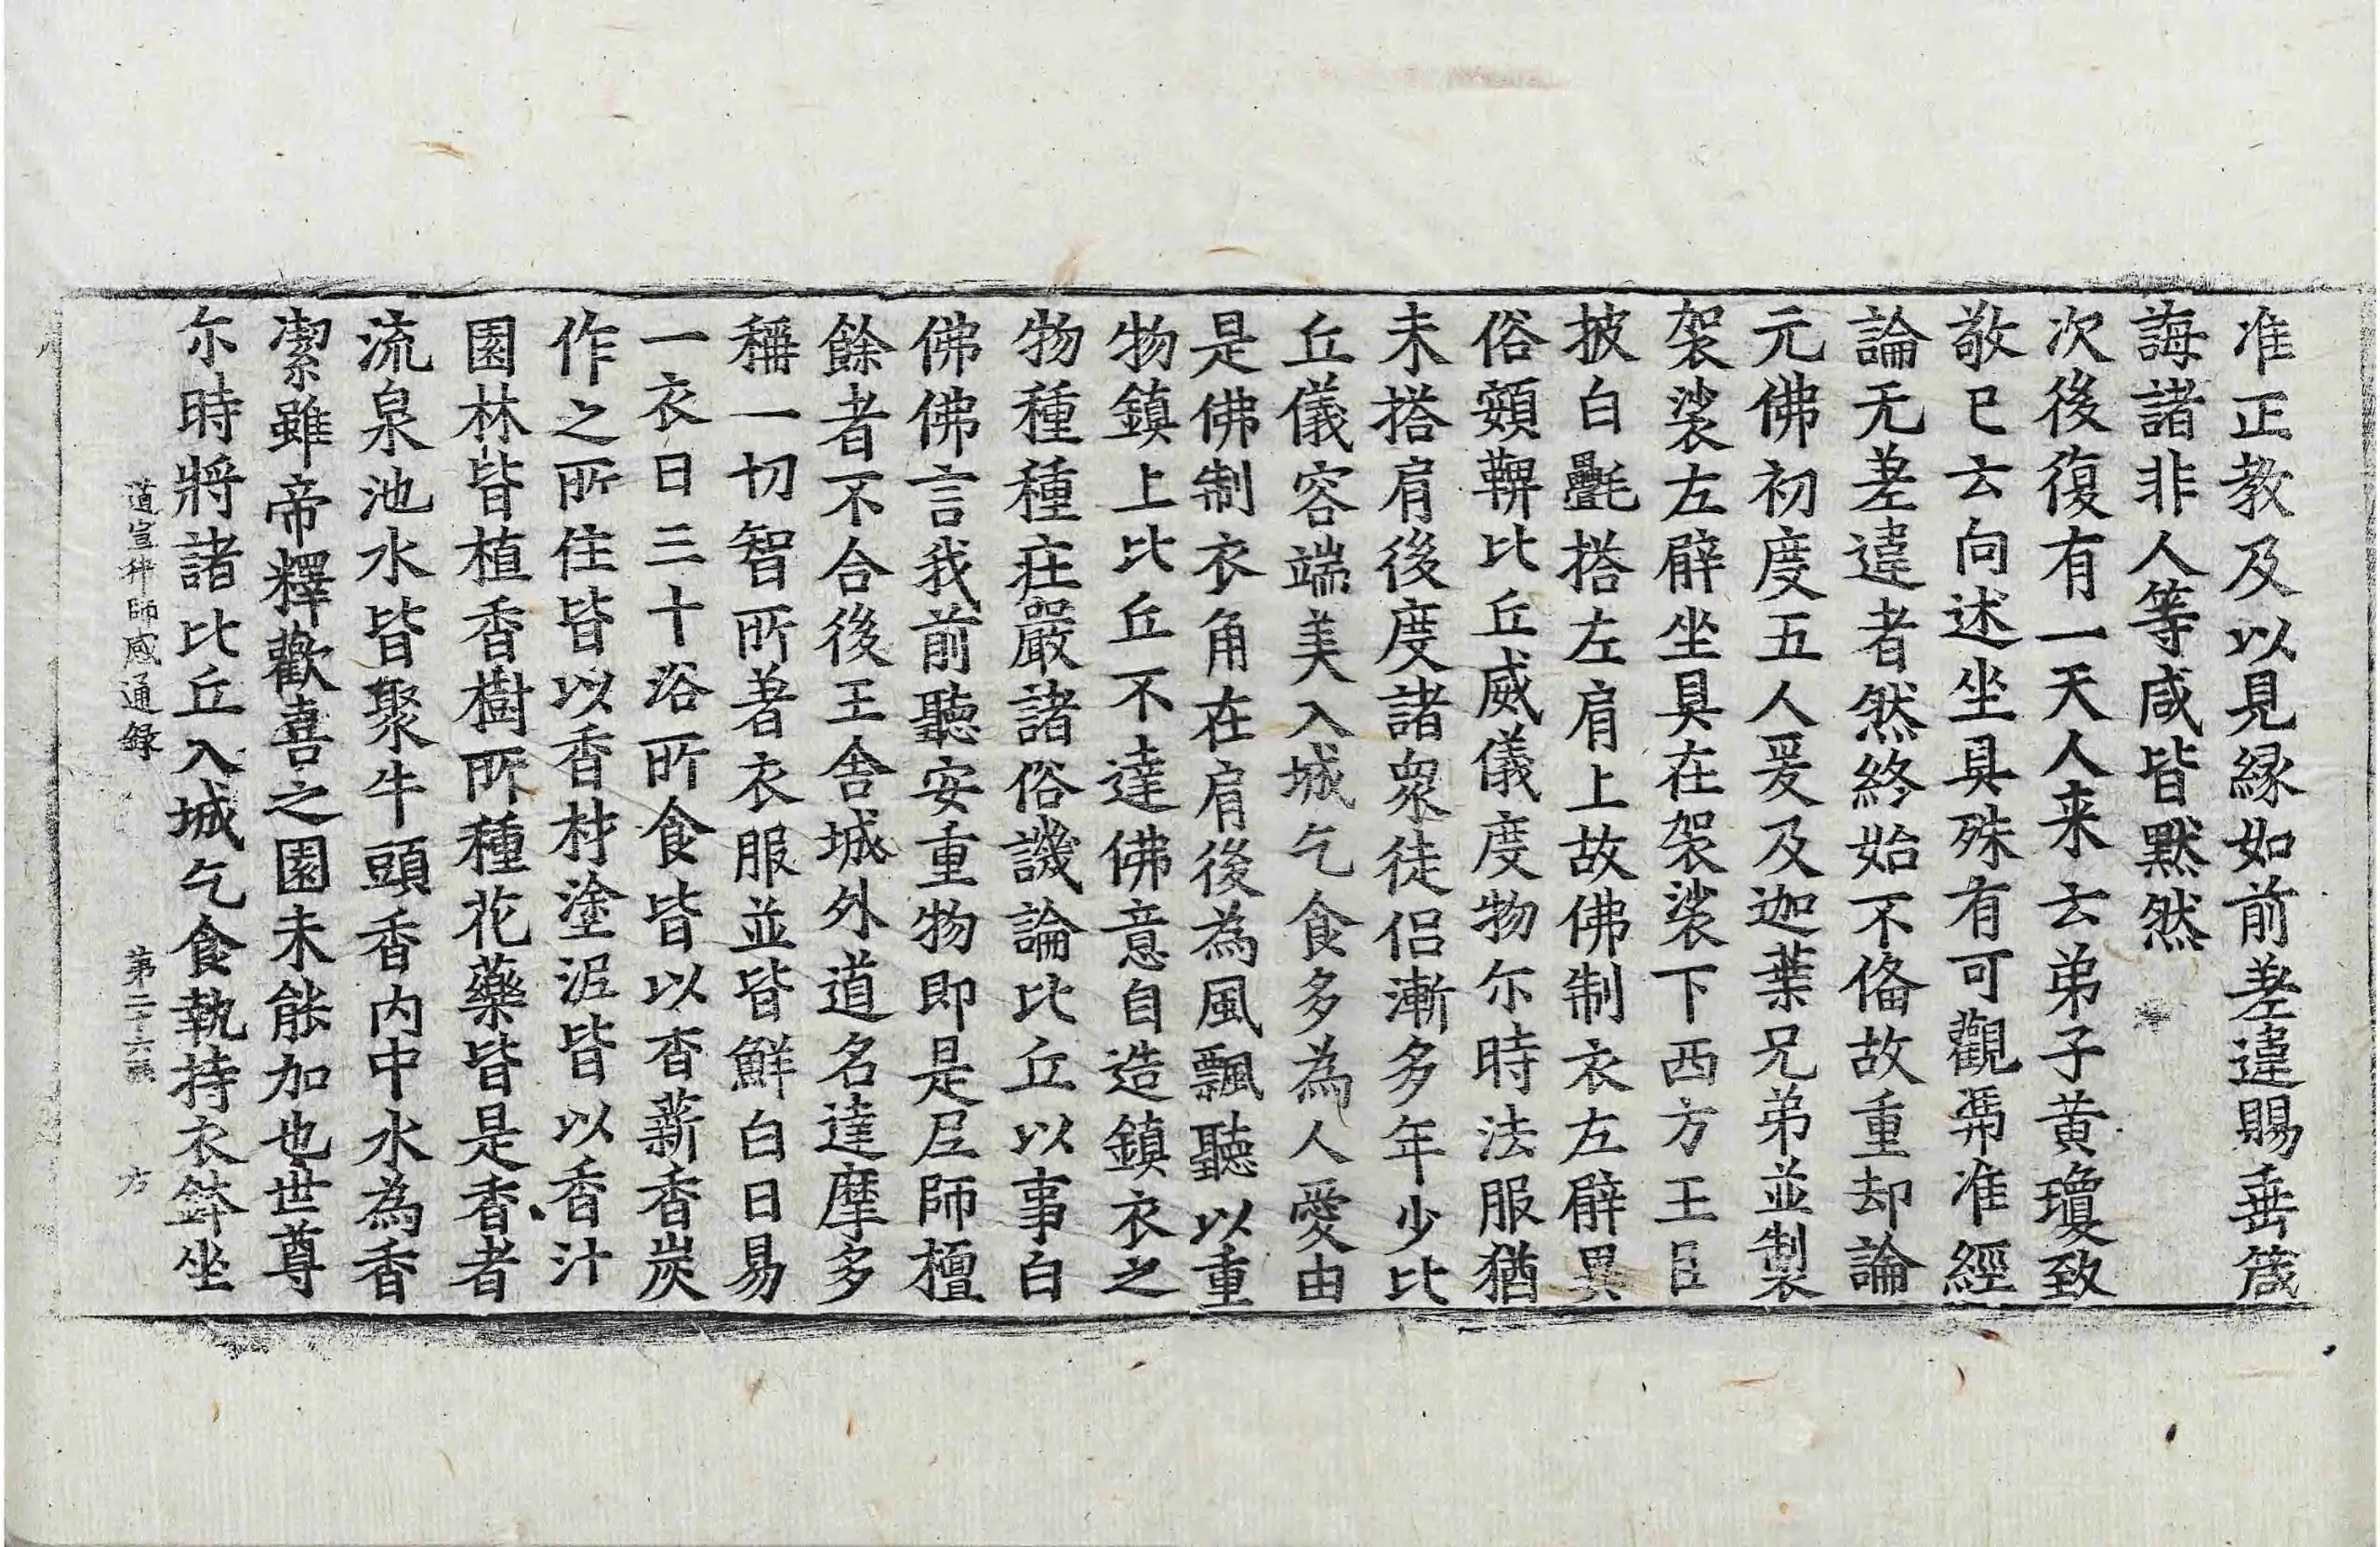 准正教及以見縁如前差違賜垂箴
誨諸非人等咸皆默然
次後復有一天人来云弟子黃瓊致
敬已云向述坐具殊有可觀弗准經
論无差違者然終始不俻故重却論
元佛初度五人爰及迦葉兄弟並製
袈裟左臂坐具在袈裟下西方王臣
披白㲲搭左肩上故佛制衣左臂異
俗頞鞞比丘威儀度物尒時法服猶
未搭肩後度諸衆徒侣漸多年少比
丘儀容端美入城乞食多為人愛由
是佛制衣角在肩後為風飄聽以重
物鎮上比丘不達佛意自造鎮衣之
物種種莊嚴諸俗譏論比丘以事白
佛佛言我前聽安重物即是尼師檀
餘者不合後王舍城外道名達摩多
稱一切智所著衣服並皆鮮白日易
一衣日三十浴所食皆以香薪香炭
作之所住皆以香材塗泥皆以香汁
園林皆植香樹所種花藥皆是香者
流泉池水皆聚牛頭香内中水為香
潔雖帝釋歡喜之園未能加也世尊
尒時將諸比丘入城乞食執持衣鉢坐
道宣律師感通録 第二十六張 方